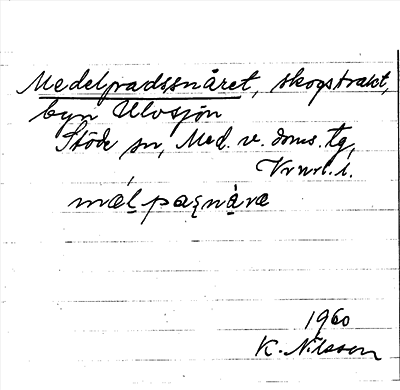 Medelpadssnåret, skogstrakt,
byn Ulvsjön
Stöde sn, Med. v. doms. tg,
Vrnrl. l.
mæl pasnáræ
1960
K. Nilsson